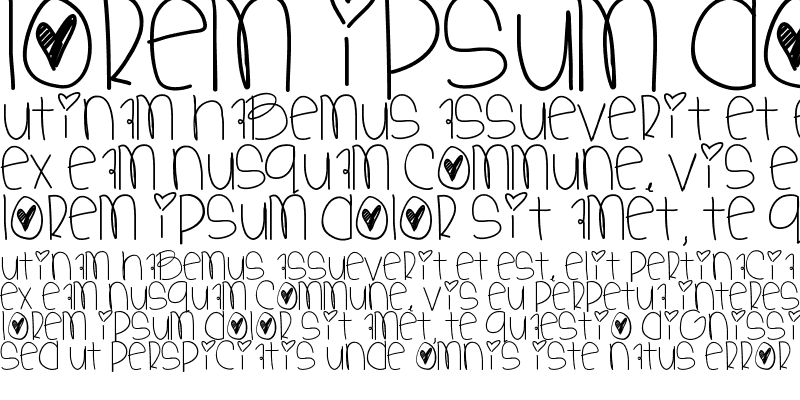 lorem ipsum do
utinam habemus assueverit et e
ex eam nusquam commune, vis e
lorem ipsum dolor sit amet, te q
utinam habemus assueverit et est, elit pertinacia
ex eam nusquam commune, vis eu perpetua interes
lorem ipsum dolor sit amet, te quaestio dignissi
sed ut perspiciatis unde omnis iste natus error